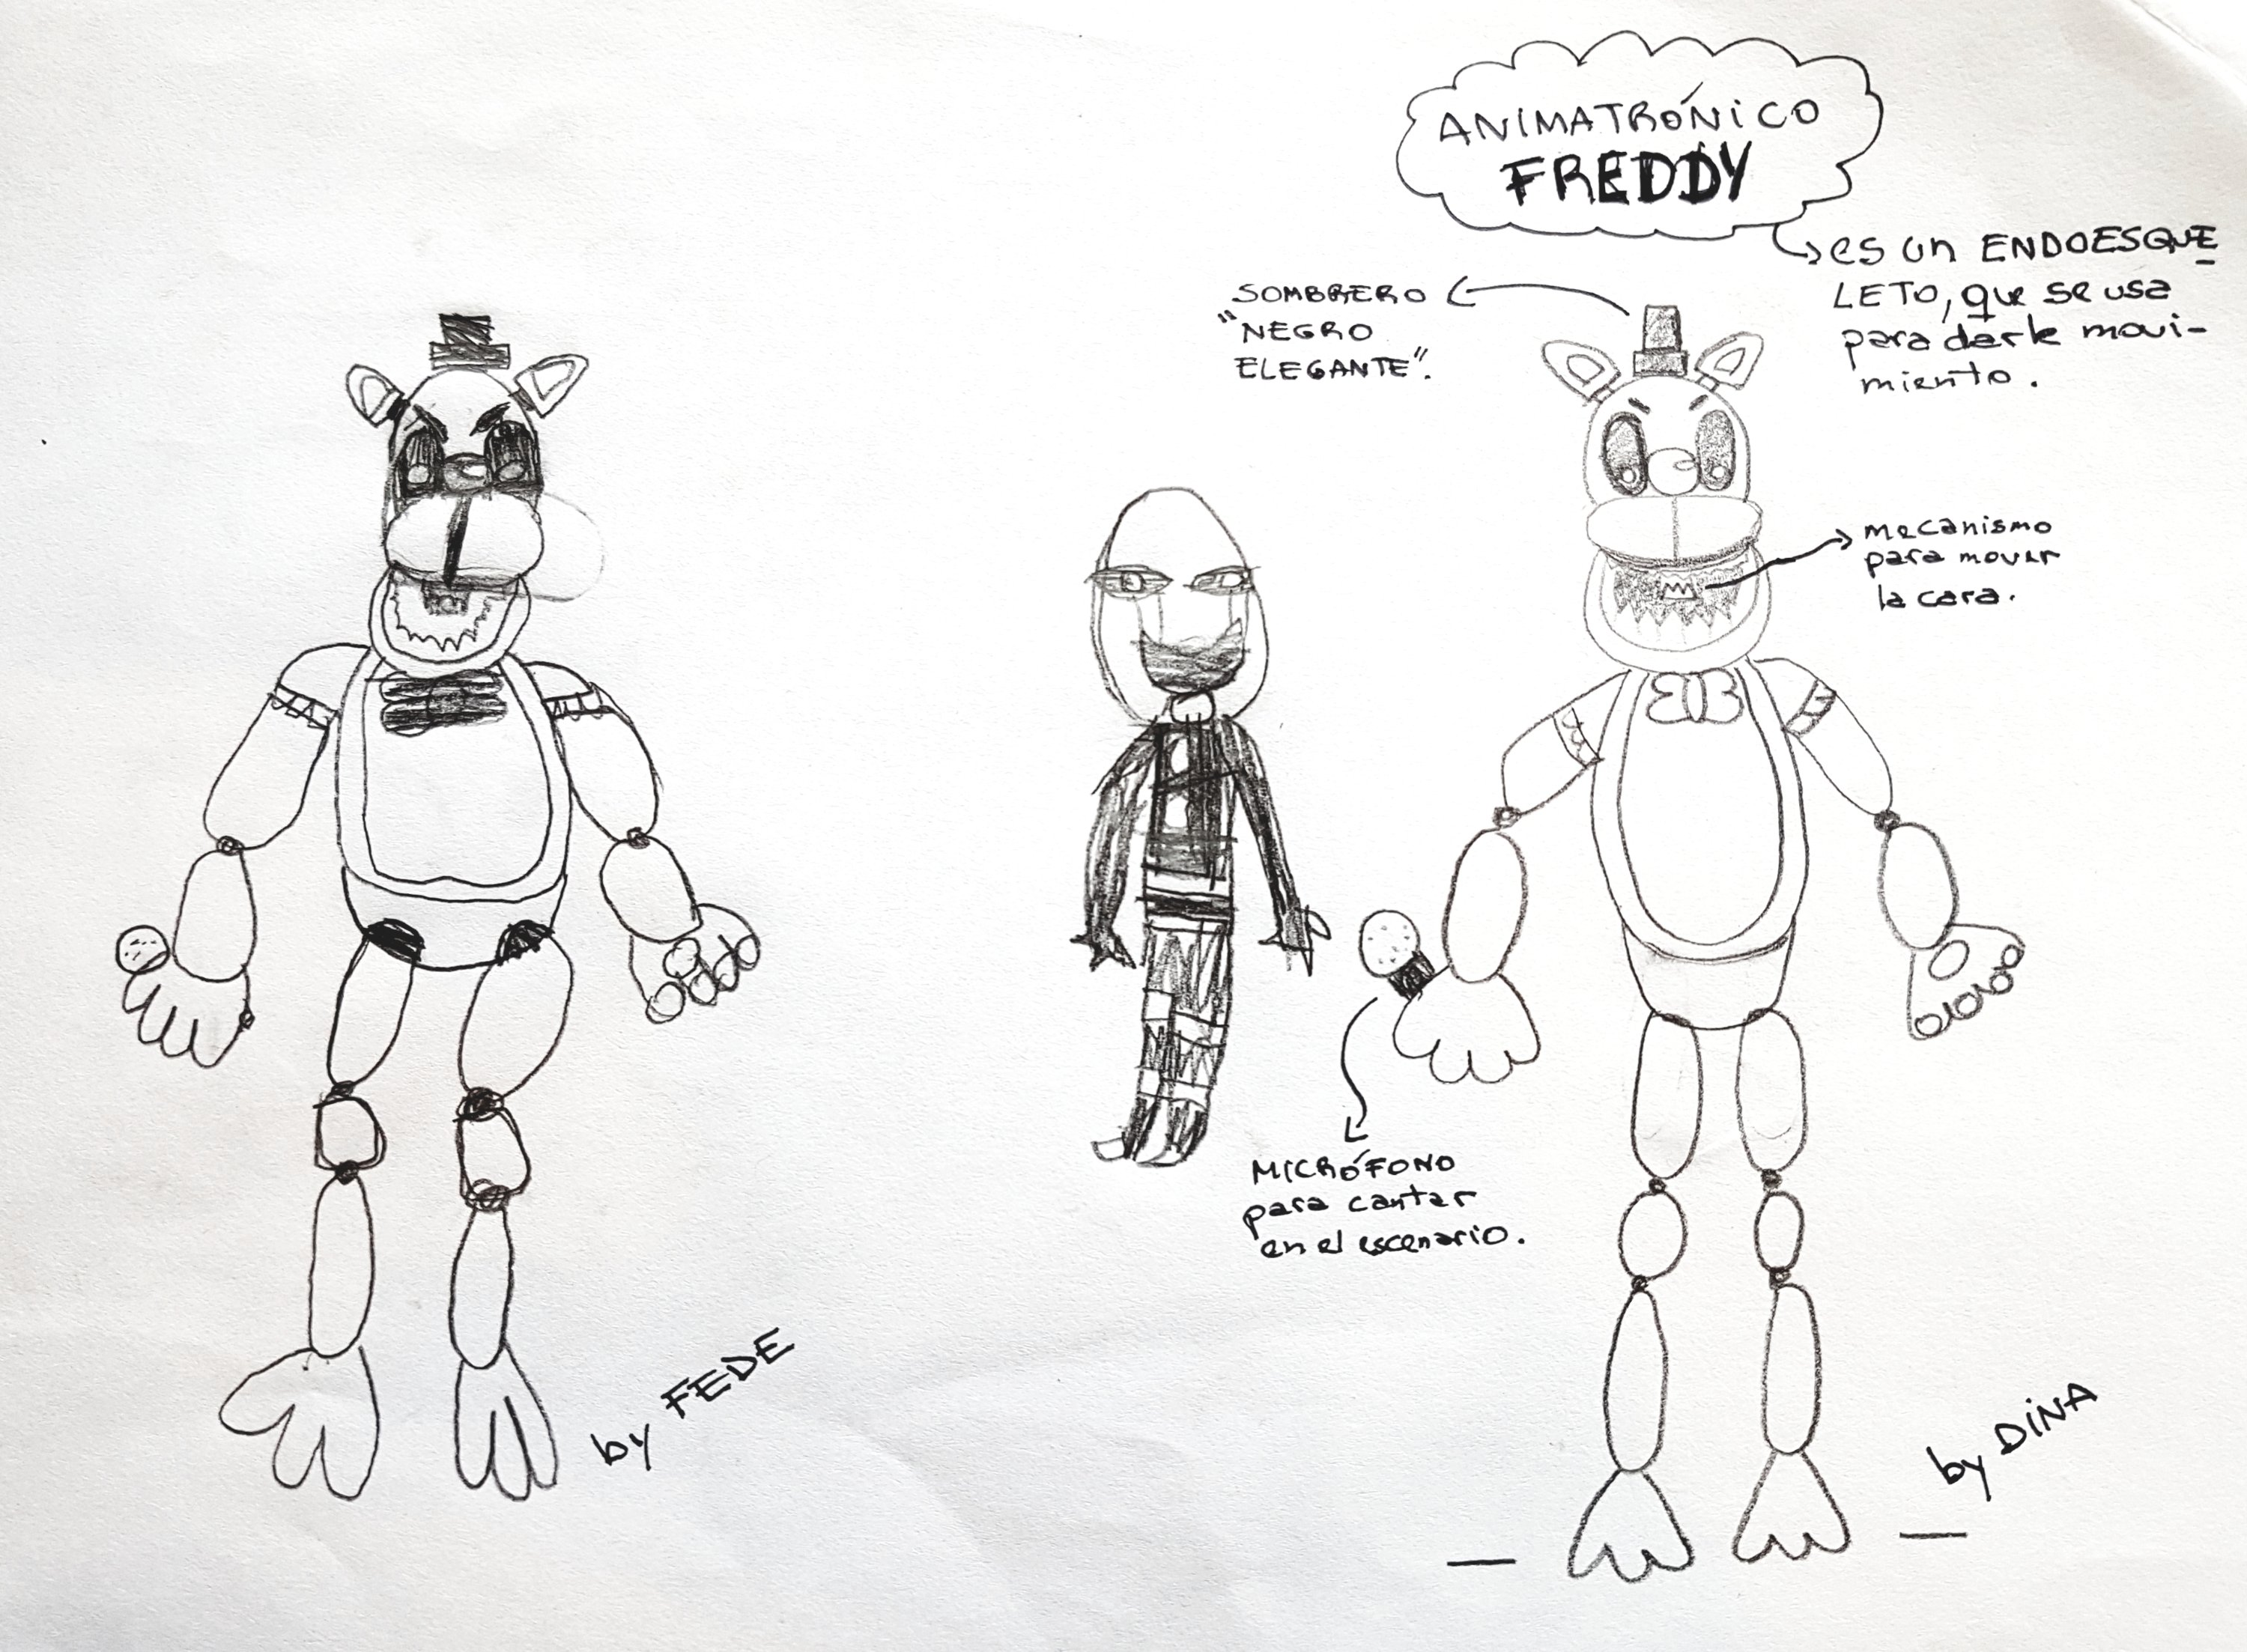 ANIMATRÓNICO
FREDDY
es un ENDOESQUE
LETO, que se usa
para darle movi-
miento.
SOMBRERO
"NEGRO
ELEGANTE".
mecanismo
para mover
la cara.
MICRÓFONO
para cantar
en el escenario.
by FEDE
by DINA